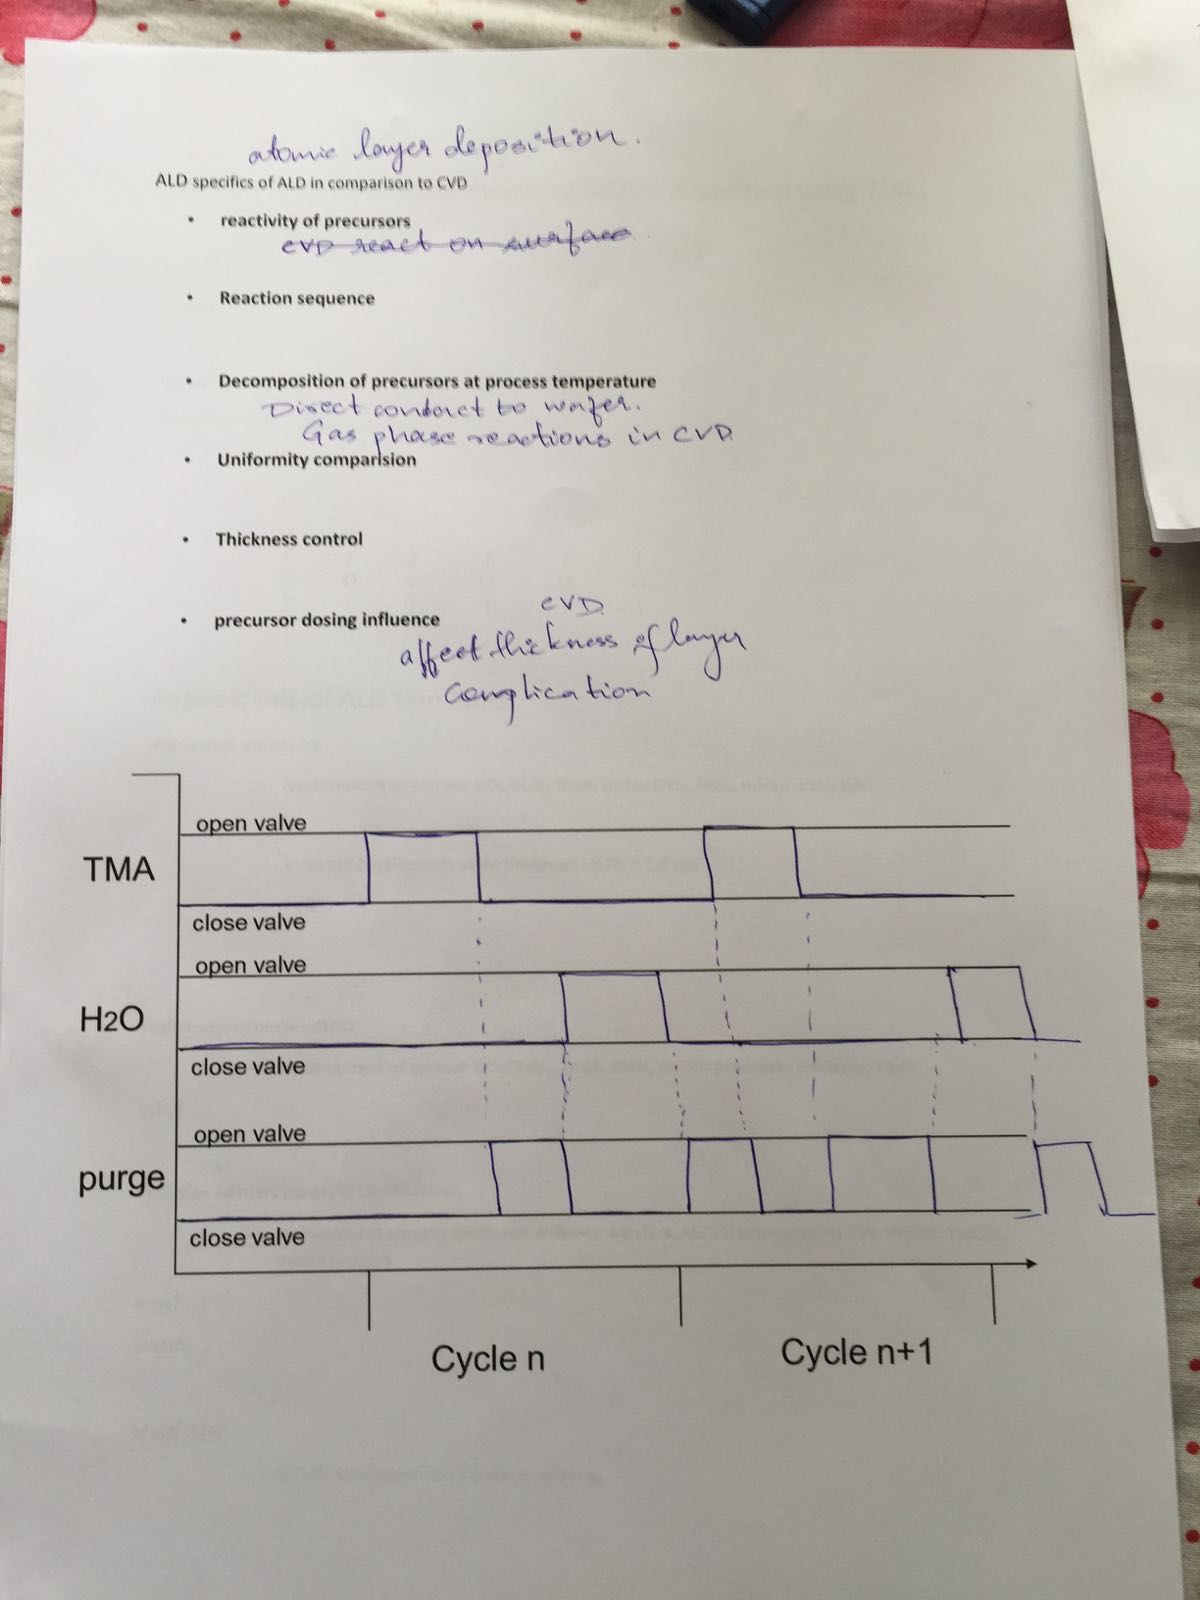 atomic layer deposition.
ALD specifics of ALD in comparison to CVD
• reactivity of precursors
CVD react on surface
• Reaction sequence
• Decomposition of precursors at process temperature
Direct contact to wafer.
Gas phase reactions in CVD.
• Uniformity comparision
• Thickness control
CVD.
• precursor dosing influence
affect thickness of layer
Complication
open valve
TMA
close valve
open valve
H2O
close valve
open valve
purge
close valve
Cycle n
Cycle n+1